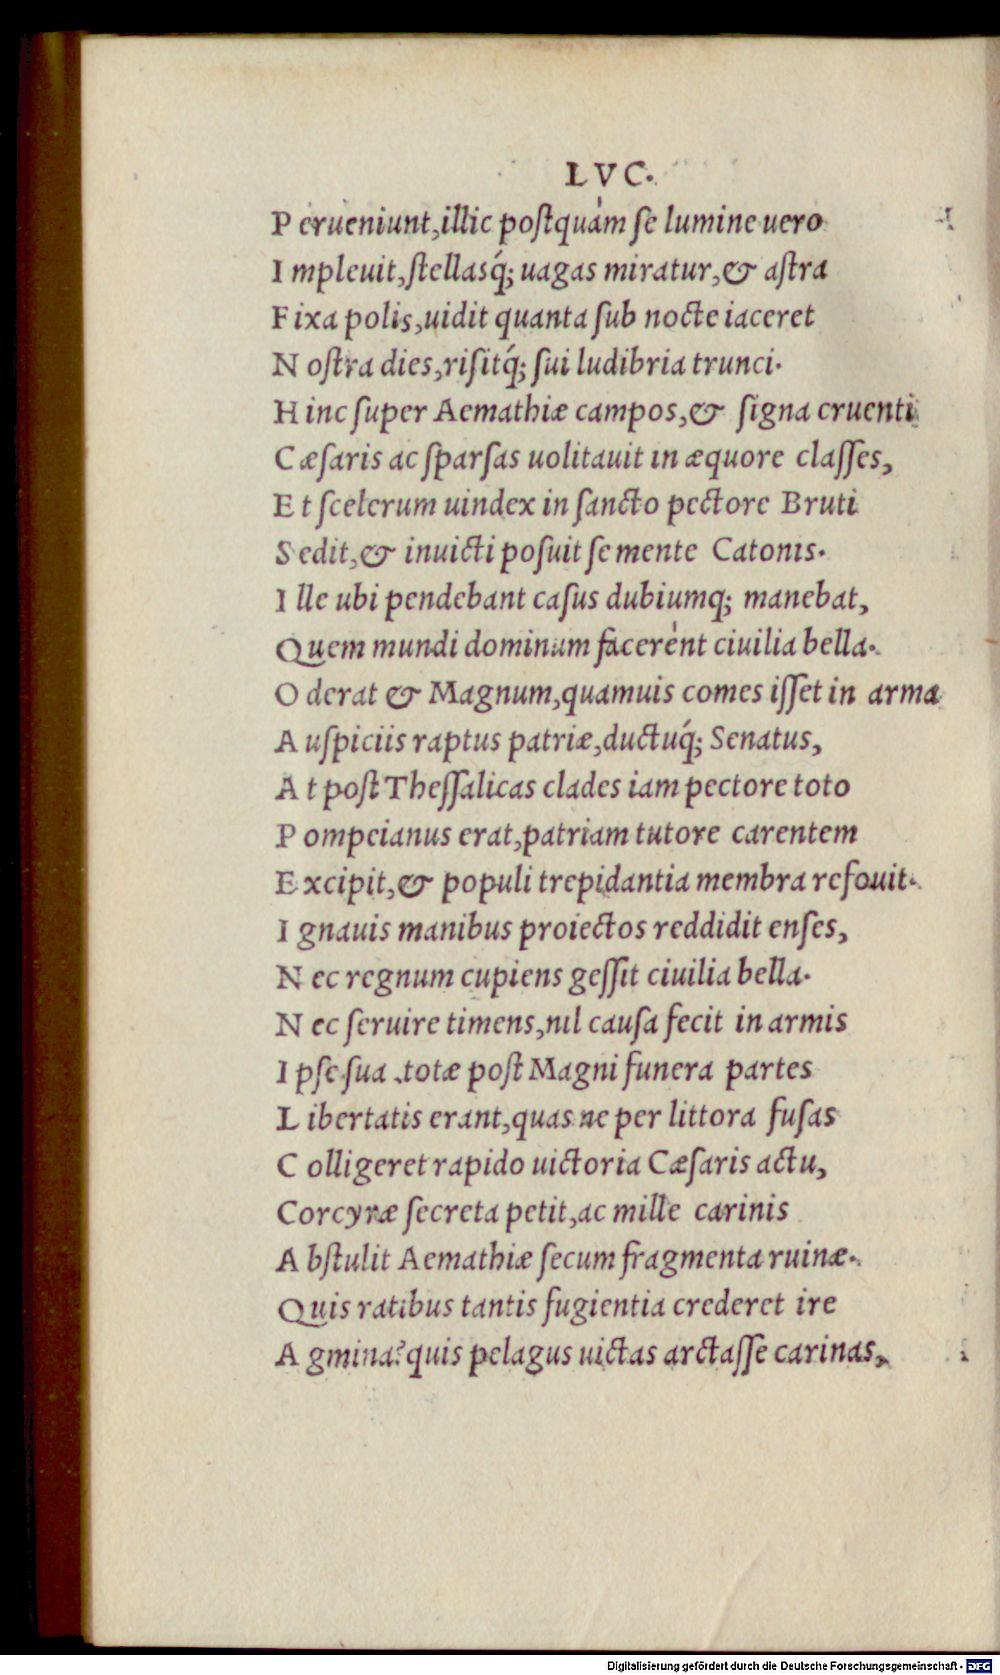 LVC.
P erueniunt,illic postquàm se lumine uero
I mpleuit,stellasq́; uagas miratur,& astra
F ixa polis,uidit quanta sub nocte iaceret
N ostra dies,risitq́; sui ludibria trunci.
H inc super Aemathiæ campos,& signa cruenti
C æsaris ac sparsas uolitauit in æquore classes,
E t scelerum uindex in sancto pectore Bruti
S edit,& inuicti posuit se mente Catonis.
I lle ubi pendebant casus dubiumq; manebat,
Quem mundi dominum facerènt ciuilia bella.
O derat & Magnum,quamuis comes isset in arma
A uspiciis raptus patriæ,ductuq́; Senatus,
A t post Thessalicas clades iam pectore toto
P ompeianus erat,patriam tutore carentem
E xcipit,& populi trepidantia membra refouit.
I gnauis manibus proiectos reddidit enses,
N ec regnum cupiens gessit ciuilia bella.
N ec seruire timens,nil causa fecit in armis
I pse sua .totæ post Magni funera partes
L ibertatis erant,quas ne per littora fusas
C olligeret rapido uictoria Cæsaris actu,
Corcyræ secreta petit,ac mille carinis
A bstulit Aemathiæ secum fragmenta ruinæ.
Quis ratibus tantis fugientia crederet ire
A gmina?quis pelagus uictas arctasse carinas,
Digitalisierung gefördert durch die Deutsche Forschungsgemeinschaft - DFG